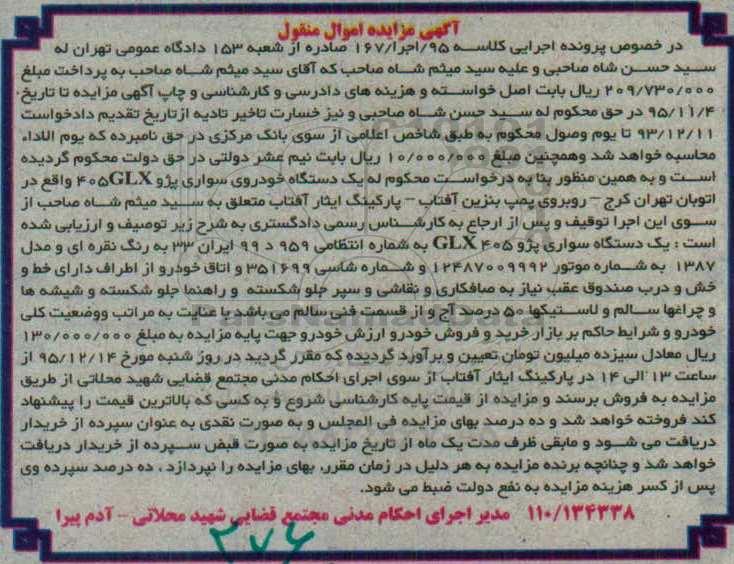 آگهی مزایده اموال منقول
در خصوص پرونده اجرایی کلاسه ۹۵/اجرا/۱۶۷ صادره از شعبه ۱۵۳ دادگاه عمومی تهران له
سید حسن شاه صاحبی و علیه سید میثم شاه صاحب که آقای سید میثم شاه صاحب به پرداخت مبلغ
۲۰۹/۷۳۰/۰۰۰ ریال بابت اصل خواسته و هزینه های دادرسی و کارشناسی و چاپ آگهی مزایده تا تاریخ
۹۵/۱۱/۴ در حق محکوم له سید حسن شاه صاحبی و نیز خسارت تاخیر تادیه ازتاریخ تقدیم دادخواست
۹۳/۱۲/۱۱ تا یوم وصول محکوم به طبق شاخص اعلامی از سوی بانک مرکزی در حق نامبرده که یوم الاداء
محاسبه خواهد شد وهمچنین مبلغ ۱۰/۰۰۰/۰۰۰ ریال بابت نیم عشر دولتی در حق دولت محکوم گردیده
است و به همین منظور بنا به درخواست محکوم له یک دستگاه خودروی سواری پژو ۴۰۵GLX واقع در
اتوبان تهران کرج – روبروی پمپ بنزین آفتاب – پارکینگ ایثار آفتاب متعلق به سید میثم شاه صاحب از
سوی این اجرا توقیف و پس از ارجاع به کارشناس رسمی دادگستری به شرح زیر توصیف و ارزیابی شده
است : یک دستگاه سواری پژو ۴۰۵ GLX به شماره انتظامی ۹۵۹ د ۹۹ ایران ۳۳ به رنگ نقره ای و مدل
۱۳۸۷ به شماره موتور ۱۲۴۸۷۰۰۹۹۹۲ و شماره شاسی ۳۵۱۶۹۹ و اتاق خودرو از اطراف دارای خط و
خش و درب صندوق عقب نیاز به صافکاری و نقاشی و سپر جلو شکسته و راهنما جلو شکسته و شیشه ها
و چراغها سالم و لاستیکها ۵۰ درصد آج و از قسمت فنی سالم می باشد با عنایت به مراتب ووضعیت کلی
خودرو و شرایط حاکم بر بازار خرید و فروش خودرو ارزش خودرو جهت پایه مزایده به مبلغ ۱۳۰/۰۰۰/۰۰۰
ریال معادل سیزده میلیون تومان تعیین و برآورد گردیده که مقرر گردید در روز شنبه مورخ ۹۵/۱۲/۱۴ از
ساعت ۱۳ الی ۱۴ در پارکینگ ایثار آفتاب از سوی اجرای احکام مدنی مجتمع قضایی شهید محلاتی از طریق
مزایده به فروش برسند و مزایده از قیمت پایه کارشناسی شروع و به کسی که بالاترین قیمت را پیشنهاد
کند فروخته خواهد شد و ده درصد بهای مزایده فی المجلس و به صورت نقدی به عنوان سپرده از خریدار
دریافت می شود و مابقی ظرف مدت یک ماه از تاریخ مزایده به صورت قبض سپرده از خریدار دریافت
خواهد شد و چنانچه برنده مزایده به هر دلیل در زمان مقرر، بهای مزایده را نپردازد ، ده درصد سپرده وی
پس از کسر هزینه مزایده به نفع دولت ضبط می شود.
۱۱۰/۱۳۴۳۳۸ مدیر اجرای احکام مدنی مجتمع قضایی شهید محلاتی – آدم پیرا
۲۷۶